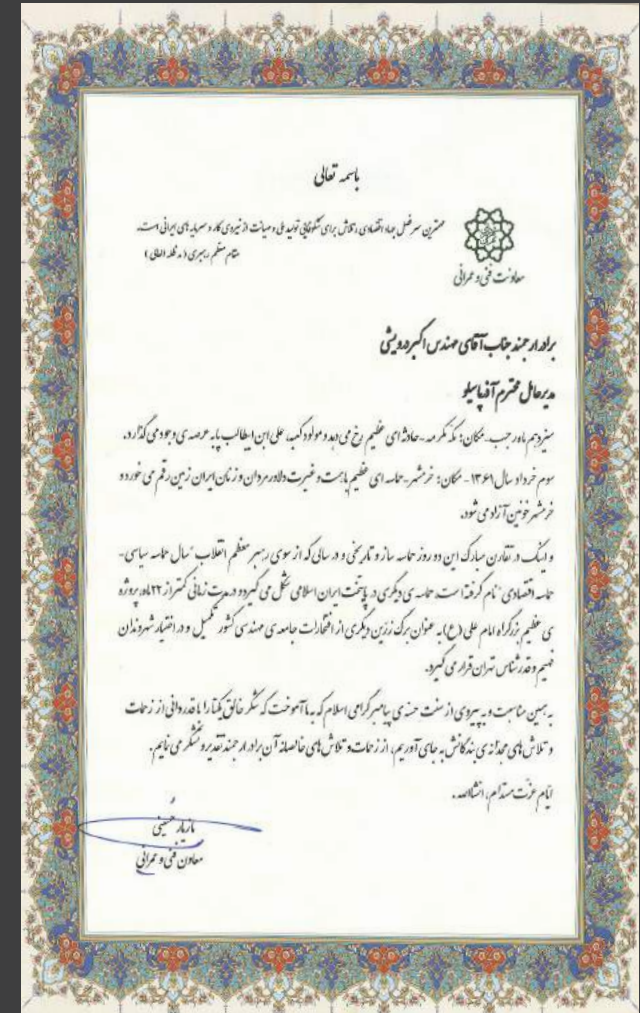 باسمه تعالی
مهمترین سرفصل جهاد اقتصادی، تلاش برای شکوفایی تولید ملی و صیانت از نیروی کار و سرمایه های ایرانی است.
مقام معظم رهبری (مدظله العالی)
معاونت فنی و عمرانی
برادر ارجمند جناب آقای مهندس اکبر درویشی
مدیرعامل محترم آذرپاسیلو
سیزدهم ماه رجب - مکان: مکه مکرمه - حادثه ای عظیم رخ می دهد و مولود کعبه، علی ابن ابیطالب پا به عرصه ی وجود می گذارد.
سوم خرداد سال ۱۳۶۱ - مکان: خرمشهر - حماسه ای عظیم با همت و غیرت دلاور مردان و زنان ایران زمین رقم می خورد و
خرمشهر خونین آزاد می شود.
و اینک در تقارن مبارک این دو روز حماسه ساز و تاریخی و در سالی که از سوی رهبر معظم انقلاب "سال حماسه سیاسی-
حماسه اقتصادی" نام گرفته است، حماسه ی دیگری در پایتخت ایران اسلامی شکل می گیرد و در مدت زمانی کمتر از ۲۲ ماه، پروژه
ی عظیم بزرگراه امام علی (ع) به عنوان برگ زرین دیگری از افتخارات جامعه ی مهندسی کشور تکمیل و در اختیار شهروندان
فهیم و قدرشناس تهران قرار می گیرد.
به همین مناسبت و به پیروی از سنت حسنه ی پیامبر گرامی اسلام که به ما آموخت که شکر خالق یکتا را با قدردانی از زحمات
و تلاش های مجدانه ی بندگانش به جای آوریم، از زحمات و تلاش های خالصانه آن برادر ارجمند تقدیر و تشکر می نمایم.
ایام عزت مستدام، انشاالله.
مازیار حسینی
معاون فنی و عمرانی